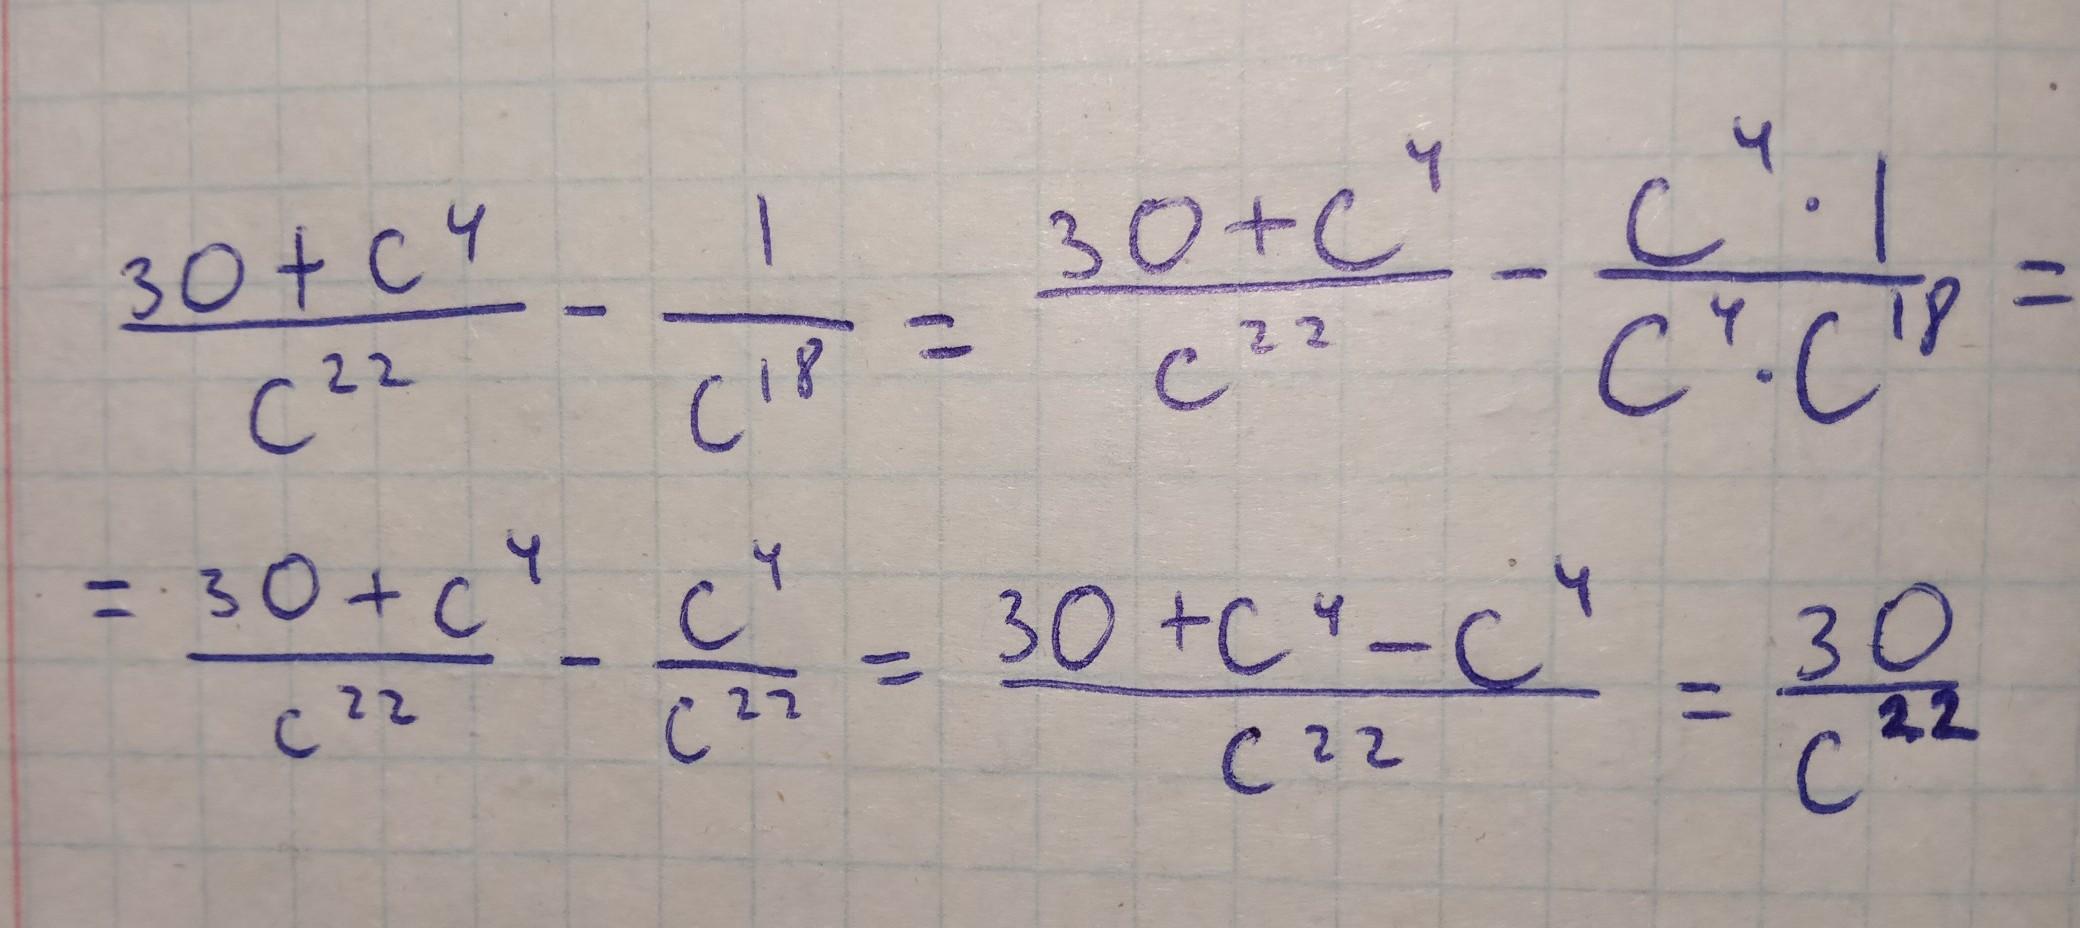 (30 + c⁴)/c²² - 1/c¹⁸ = (30 + c⁴)/c²² - (c⁴ · 1)/(c⁴ · c¹⁸) =
= (30 + c⁴)/c²² - c⁴/c²² = (30 + c⁴ - c⁴)/c²² = 30/c²²